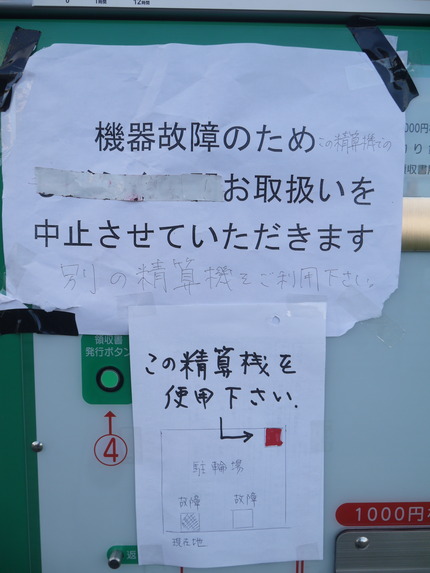 0 1時間 12時間
機器故障のため この精算機での
お取扱いを
中止させていただきます
別の精算機をご利用下さい。
領収書
発行ボタン
④
この精算機を
使用下さい.
駐輪場
故障 故障
現在地
1000円